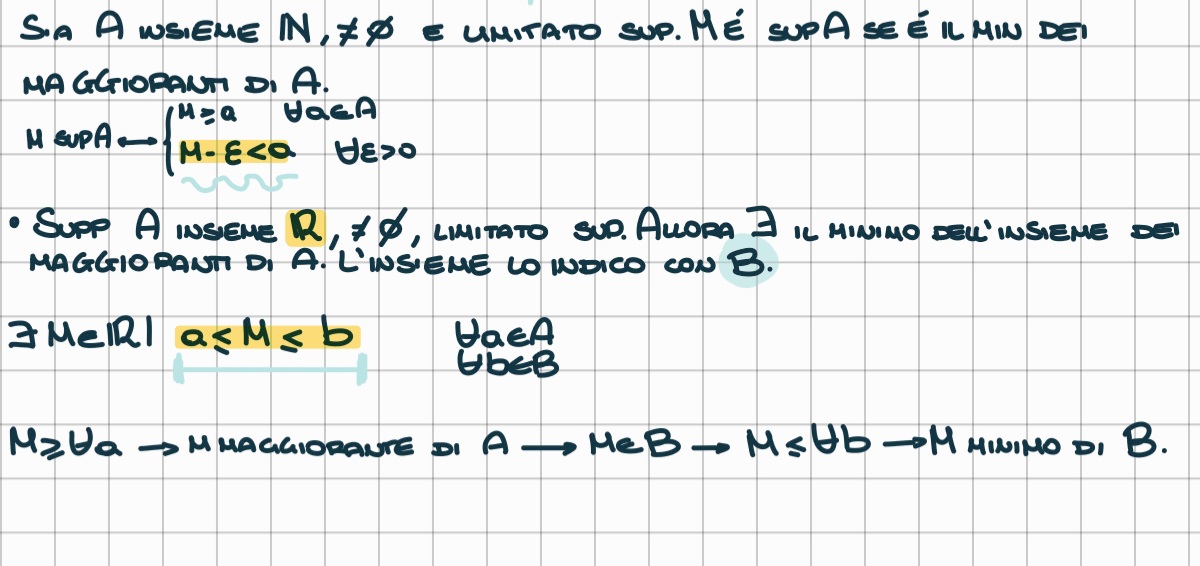 SIA A INSIEME ℕ, ≠ ∅ E LIMITATO SUP. M É SUP A SE É IL MIN DEI
MAGGIORANTI DI A.
M SUP A ⟷ { M ≥ a ∀a∈A
M - ε < a ∀ε>0
• SUPP A INSIEME ℝ, ≠ ∅, LIMITATO SUP. ALLORA ∃ IL MINIMO DELL'INSIEME DEI
MAGGIORANTI DI A. L'INSIEME LO INDICO CON B.
∃ M∈ℝ | a ≤ M ≤ b ∀a∈A
∀b∈B
M ≥ ∀a → M MAGGIORANTE DI A → M∈B → M ≤ ∀b → M MINIMO DI B.